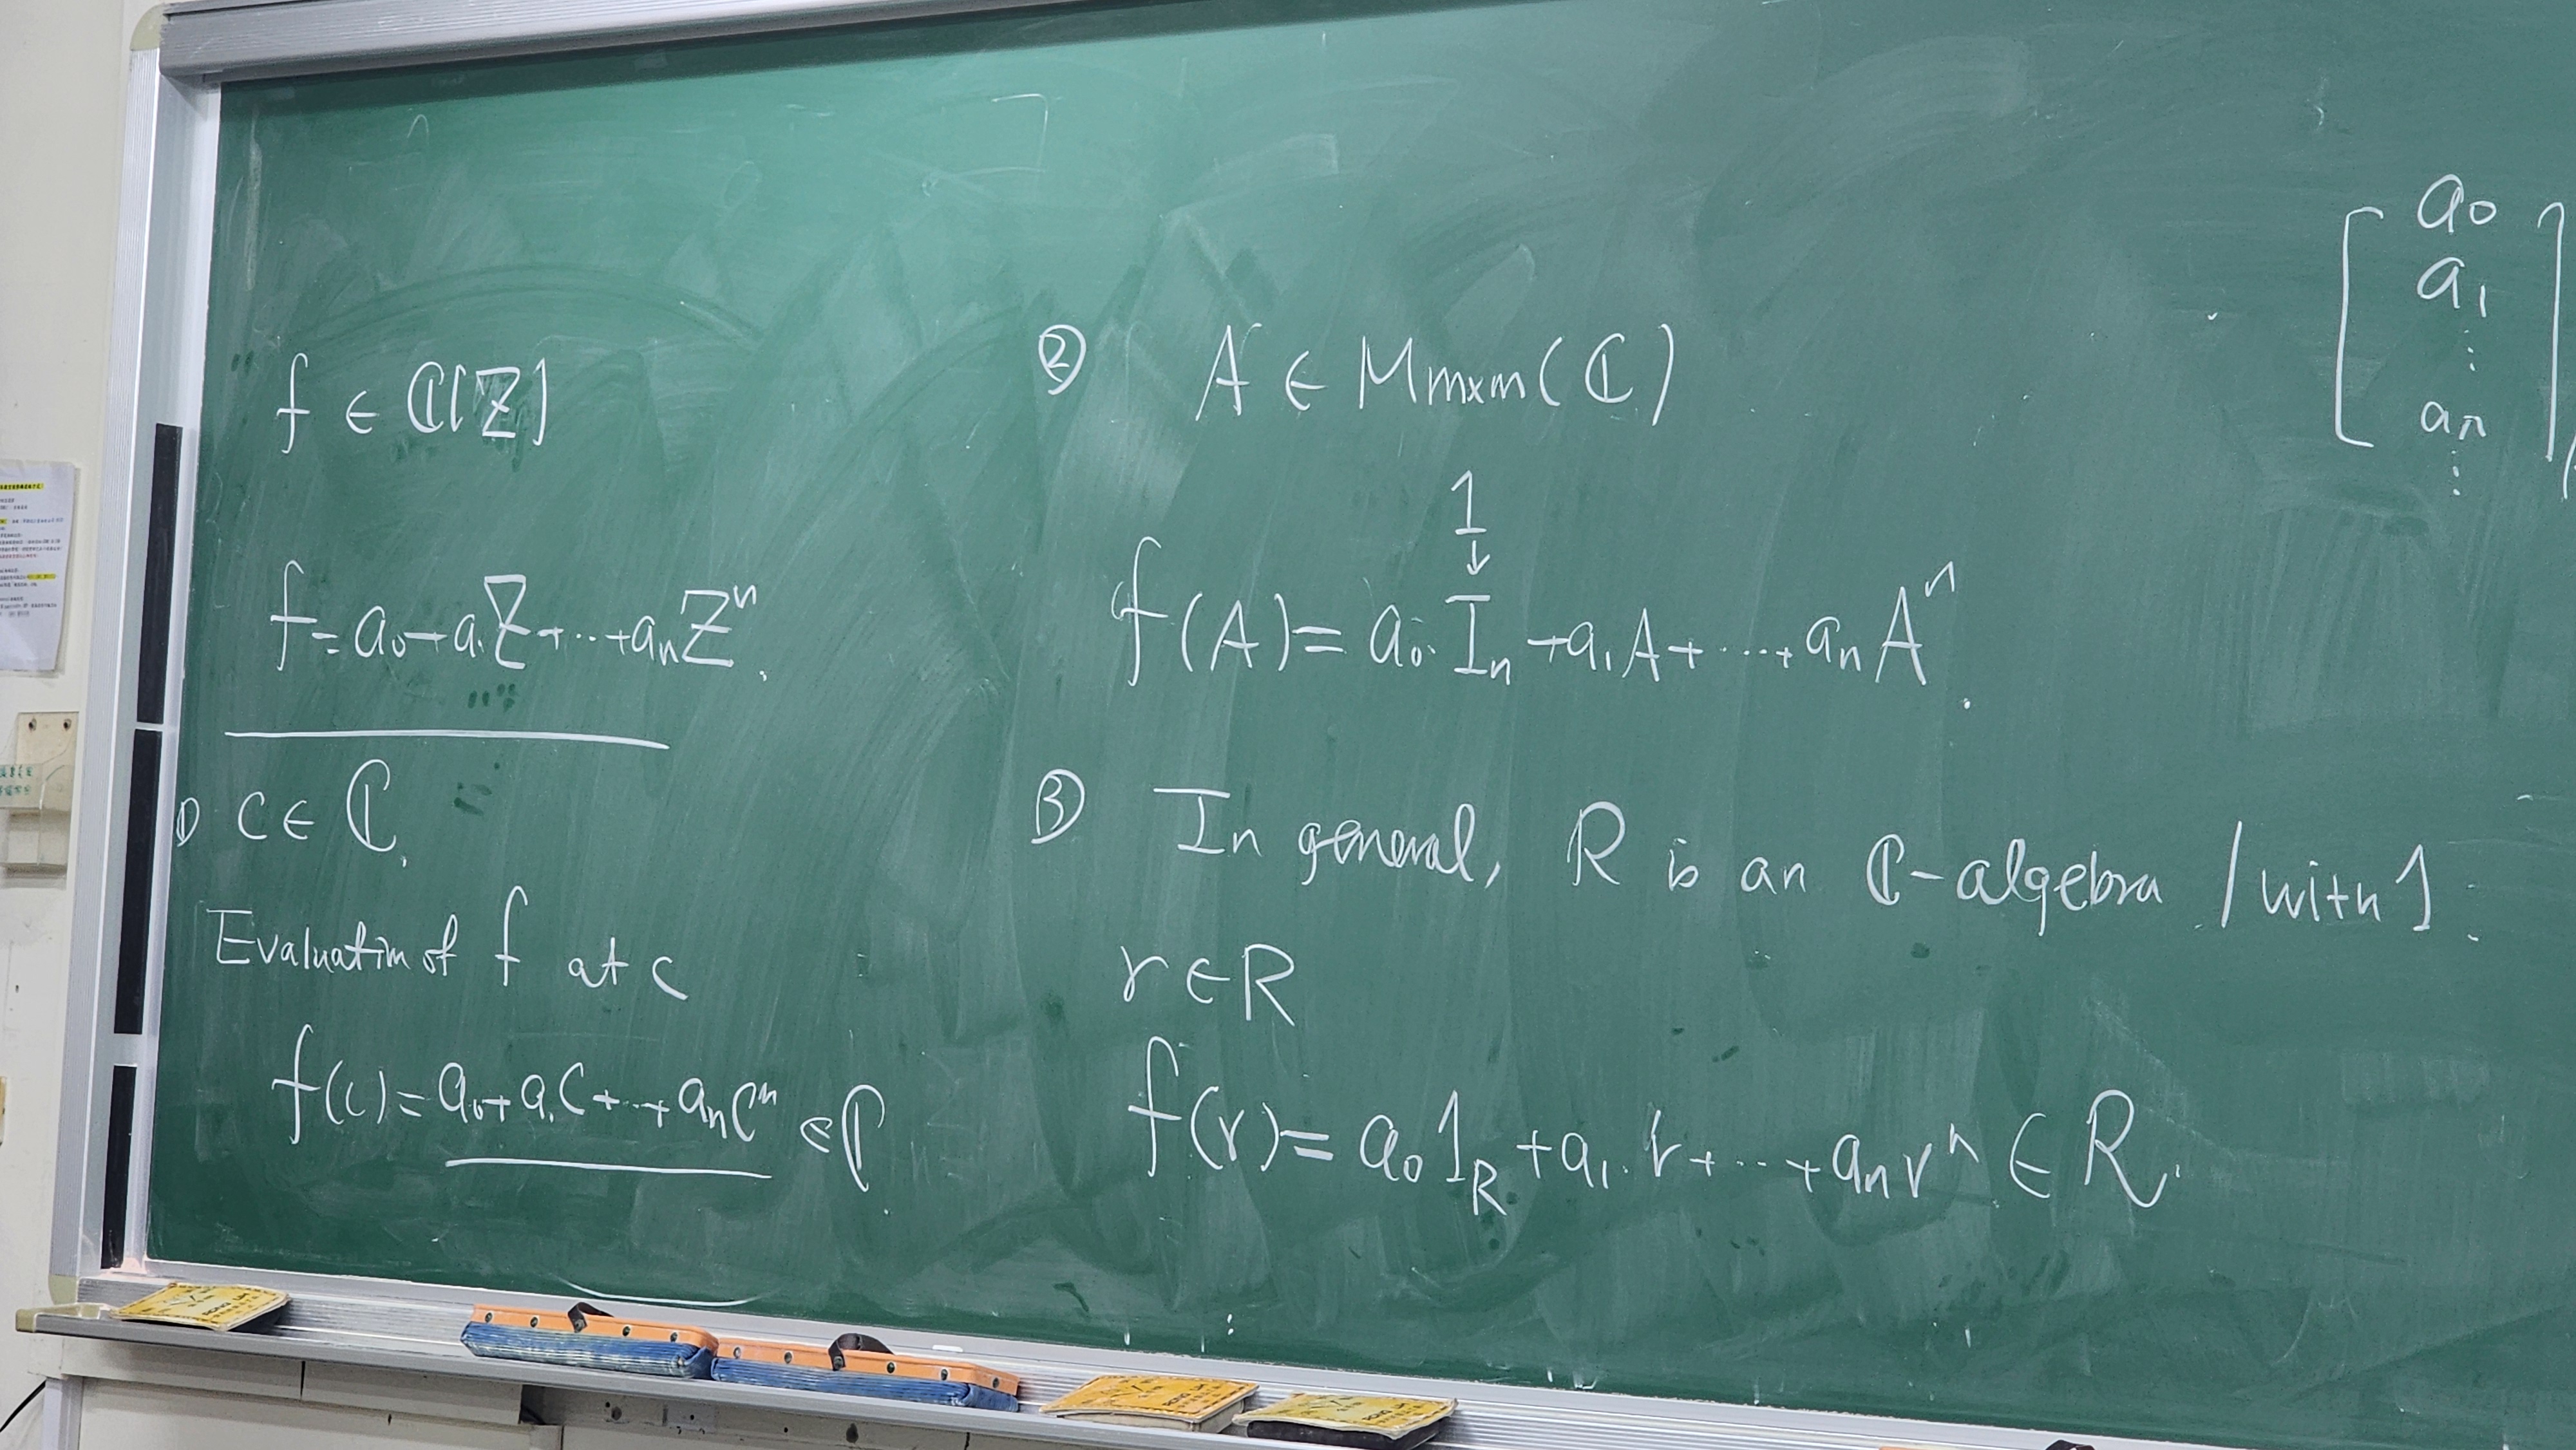 f ∈ ℂ[Z]
f = a₀ + a₁Z + ... + aₙZⁿ.
① c ∈ ℂ.
Evaluation of f at c
f(c) = a₀ + a₁c + ... + aₙcⁿ ∈ ℂ.
② A ∈ Mm×m(ℂ)
1
↓
f(A) = a₀·Iₙ + a₁A + ... + aₙAⁿ.
③ In general, R is an ℂ-algebra / with 1.
r ∈ R
f(r) = a₀1_R + a₁·r + ... + aₙrⁿ ∈ R.
a₀
a₁
⋮
aₙ
⋮